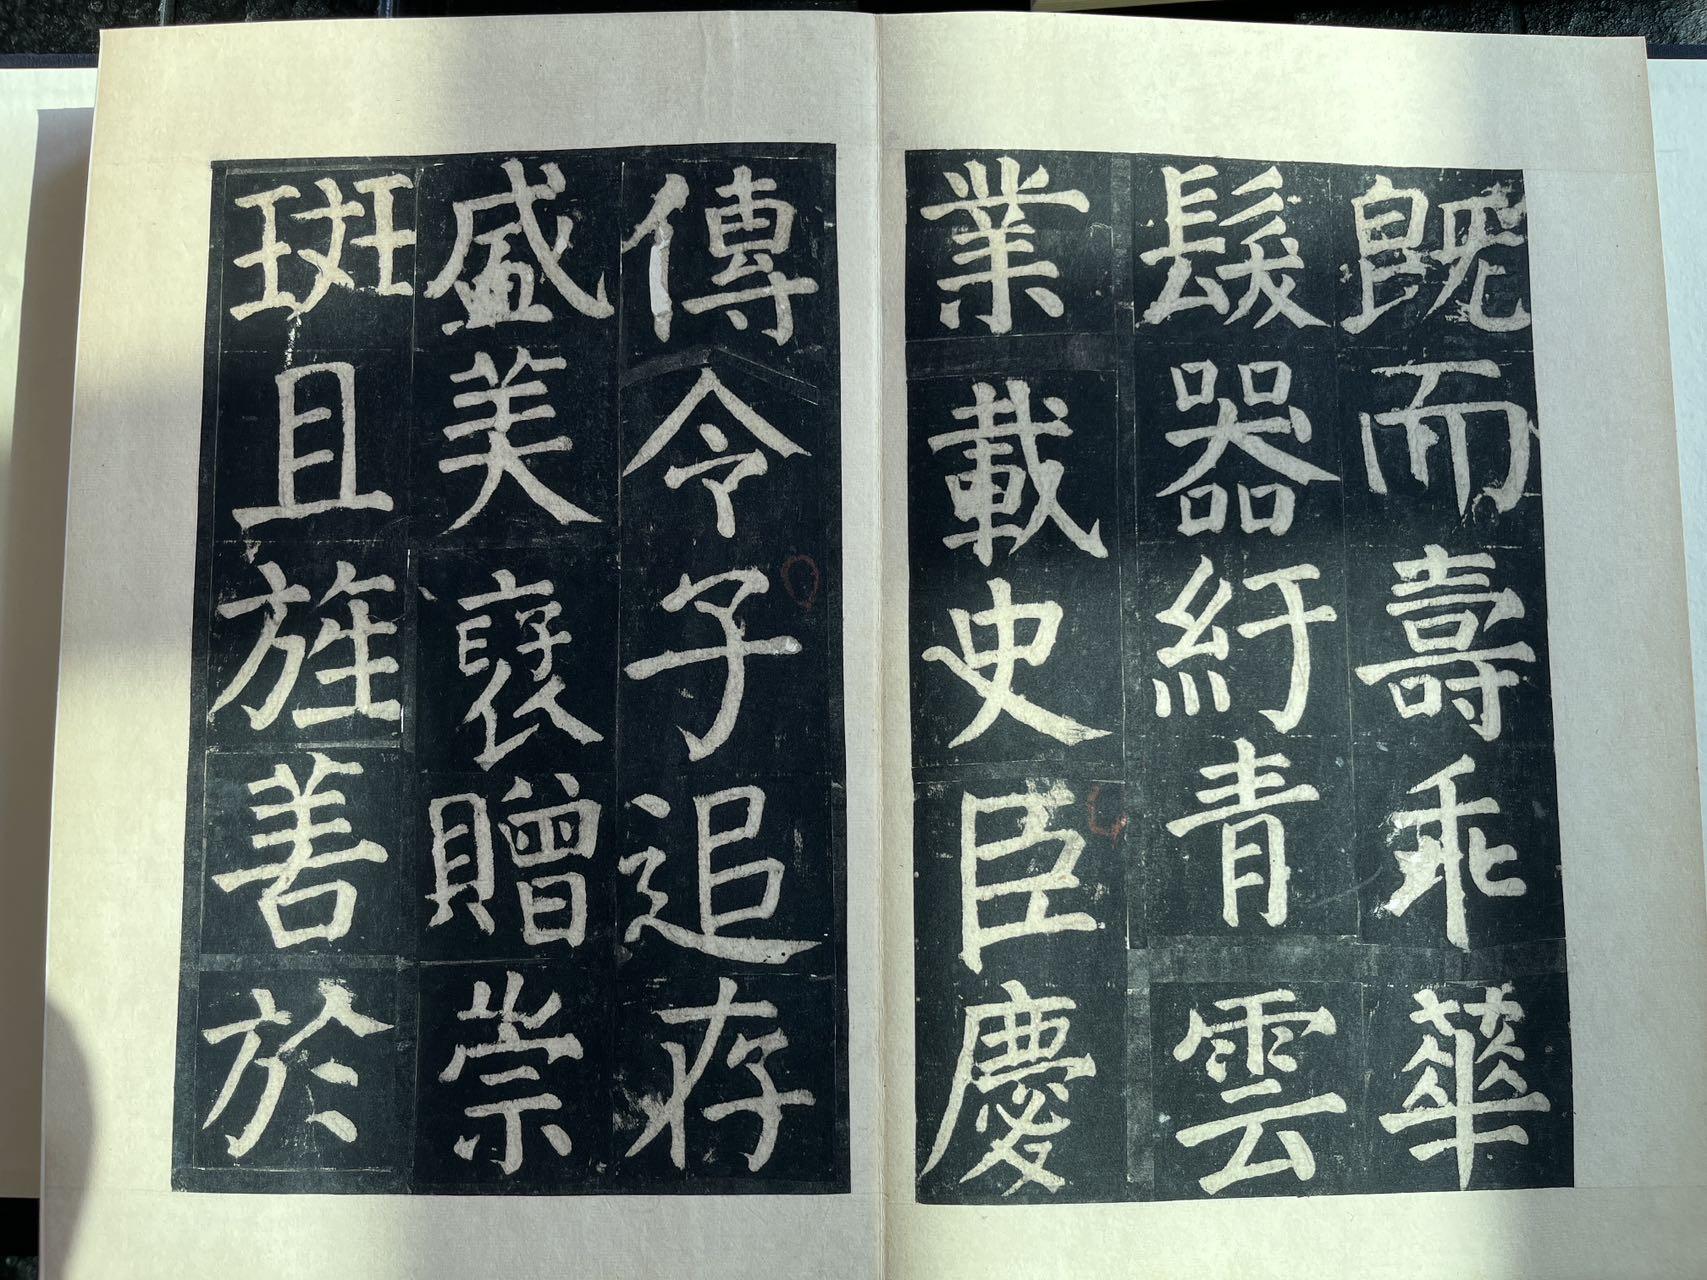 既而壽乖華
髮器紆青雲
業載史臣慶
傳令子追存
盛美褒贈崇
班且旌善於